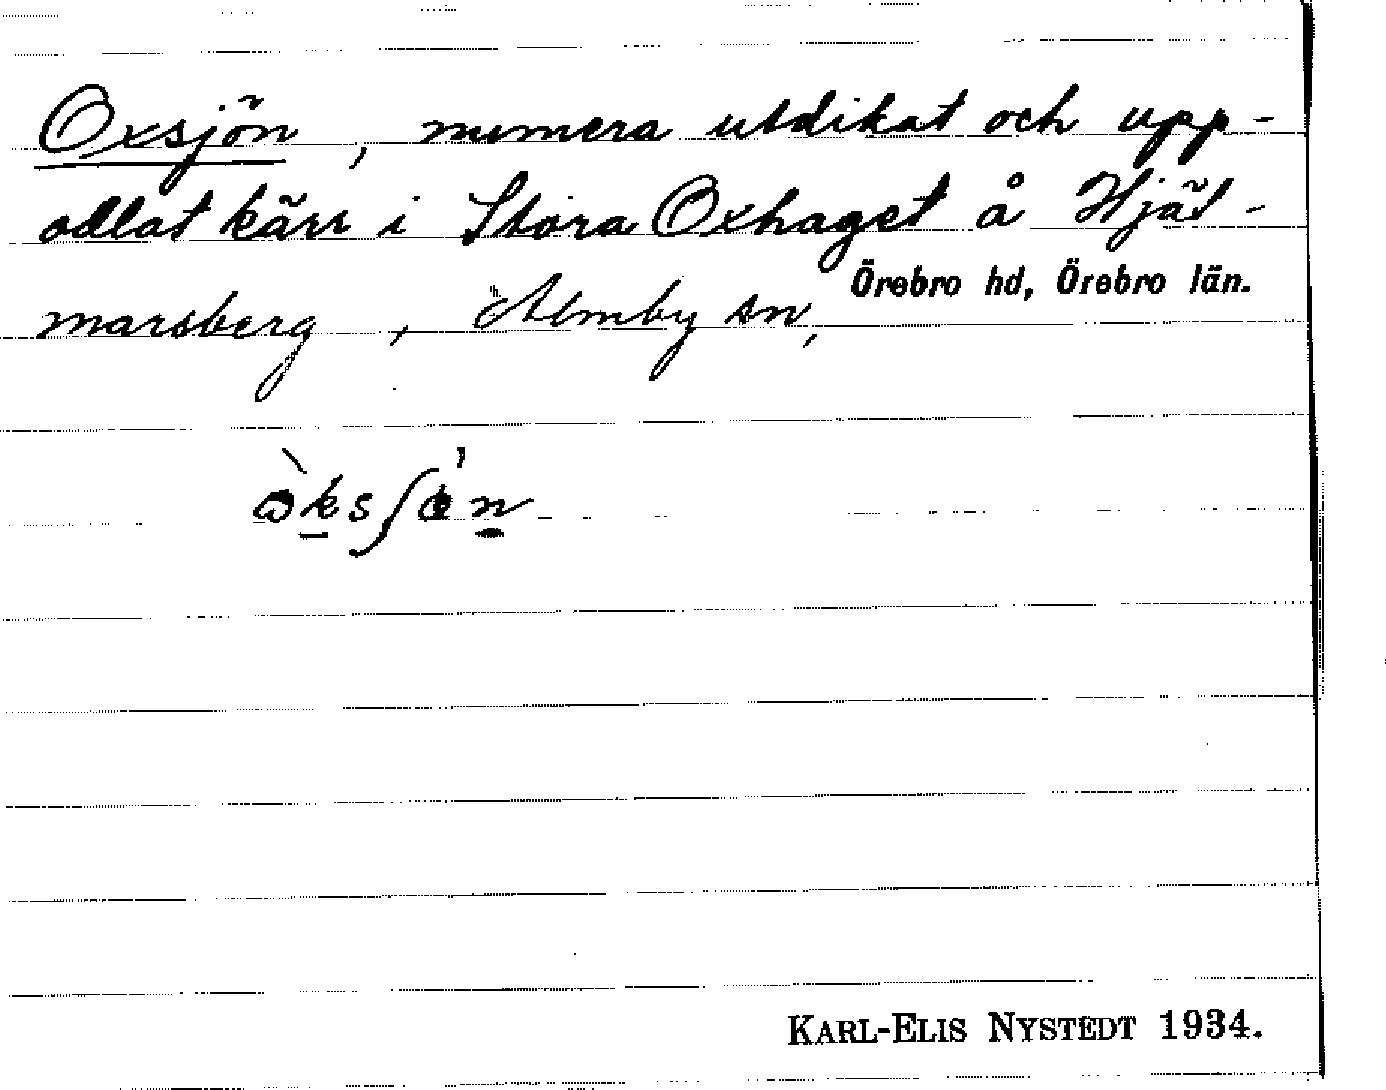 Oxsjön, numera utdikat och upp-
odlat kärr i Stora Oxhaget å Hjäl-
marsberg, Almby sn, Örebro hd, Örebro län.
KARL-ELIS NYSTEDT 1934.